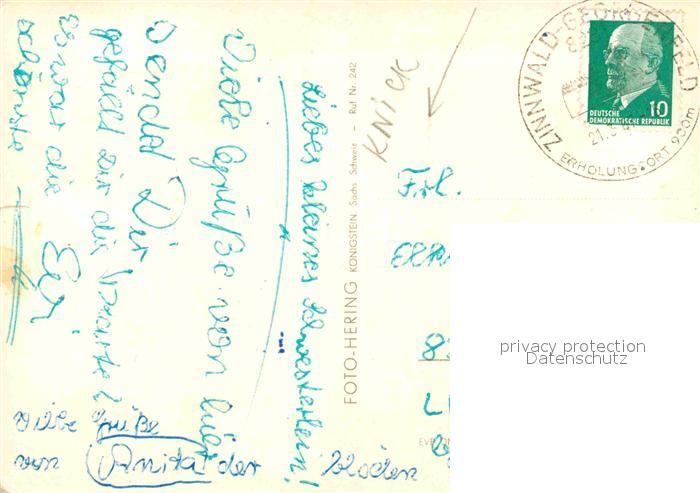 Liebes kleines Schwesterlein!
Viele Grüße von hier
sendet Dir
gefällt Dir die Karte?
es war die
schönste
Viele Grüße
von Anita der blöden
KNICK
FOTO-HERING KÖNIGSTEIN Sächs Schweiz – Ruf Nr. 242
Frl.
ZINNWALD-GEORGENFELD
21.5
ERHOLUNGSORT 900m
10
DEUTSCHE
DEMOKRATISCHE REPUBLIK
privacy protection
Datenschutz